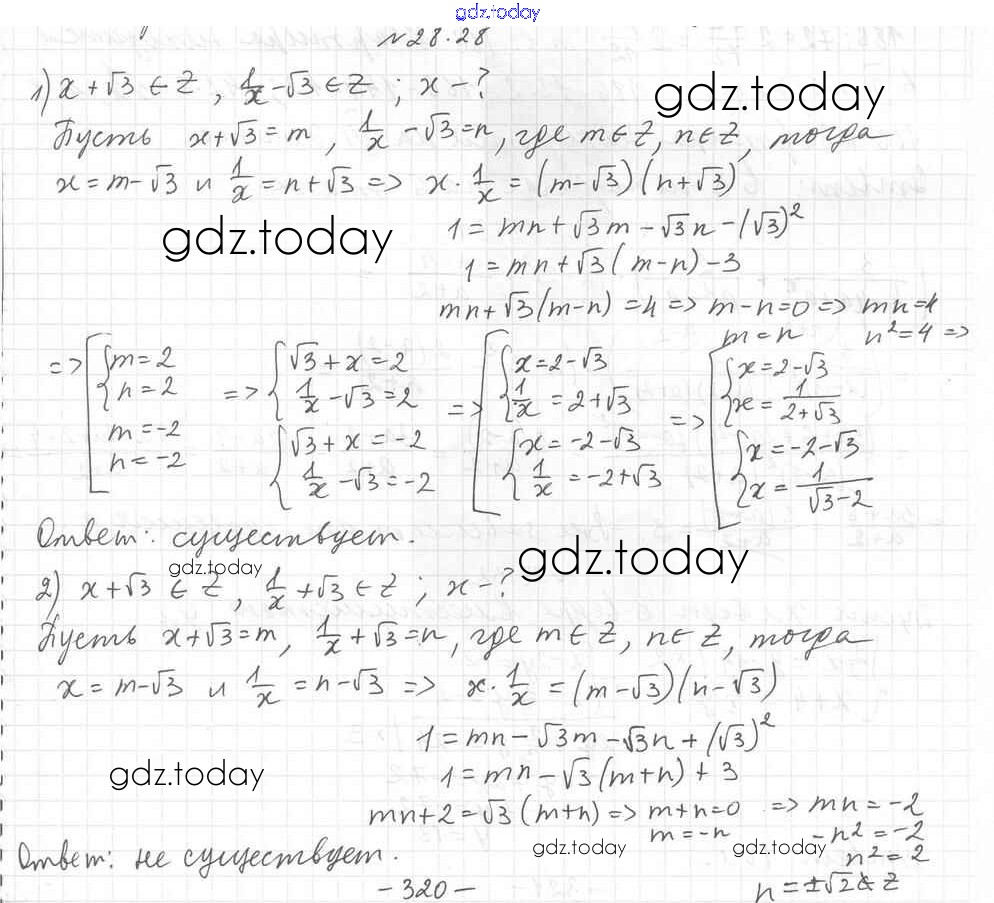 gdz.today
№28.28
1) x+√3 ∈ Z, 1/x-√3 ∈ Z; x-?
gdz.today
Пусть x+√3=m, 1/x-√3=n, где m∈Z, n∈Z, тогда
x=m-√3 и 1/x=n+√3 => x·1/x=(m-√3)(n+√3)
gdz.today
1=mn+√3m-√3n-(√3)²
1=mn+√3(m-n)-3
mn+√3(m-n)=4 => m-n=0 => mn=4
m=n n²=4 =>
=> [ { m=2 n=2 m=-2 n=-2 => { √3+x=2 1/x-√3=2 { √3+x=-2 1/x-√3=-2 => [ { x=2-√3 1/x=2+√3 { x=-2-√3 1/x=-2+√3 => [ { x=2-√3 x=1/(2+√3) { x=-2-√3 x=1/(√3-2)
Ответ: существует.
gdz.today
gdz.today
2) x+√3 ∈ Z, 1/x+√3 ∈ Z; x-?
Пусть x+√3=m, 1/x+√3=n, где m∈Z, n∈Z, тогда
x=m-√3 и 1/x=n-√3 => x·1/x=(m-√3)(n-√3)
1=mn-√3m-√3n+(√3)²
gdz.today
1=mn-√3(m+n)+3
mn+2=√3(m+n) => m+n=0 => mn=-2
m=-n -n²=-2
gdz.today gdz.today
n²=2
Ответ: не существует.
n=±√2∉Z
-320-